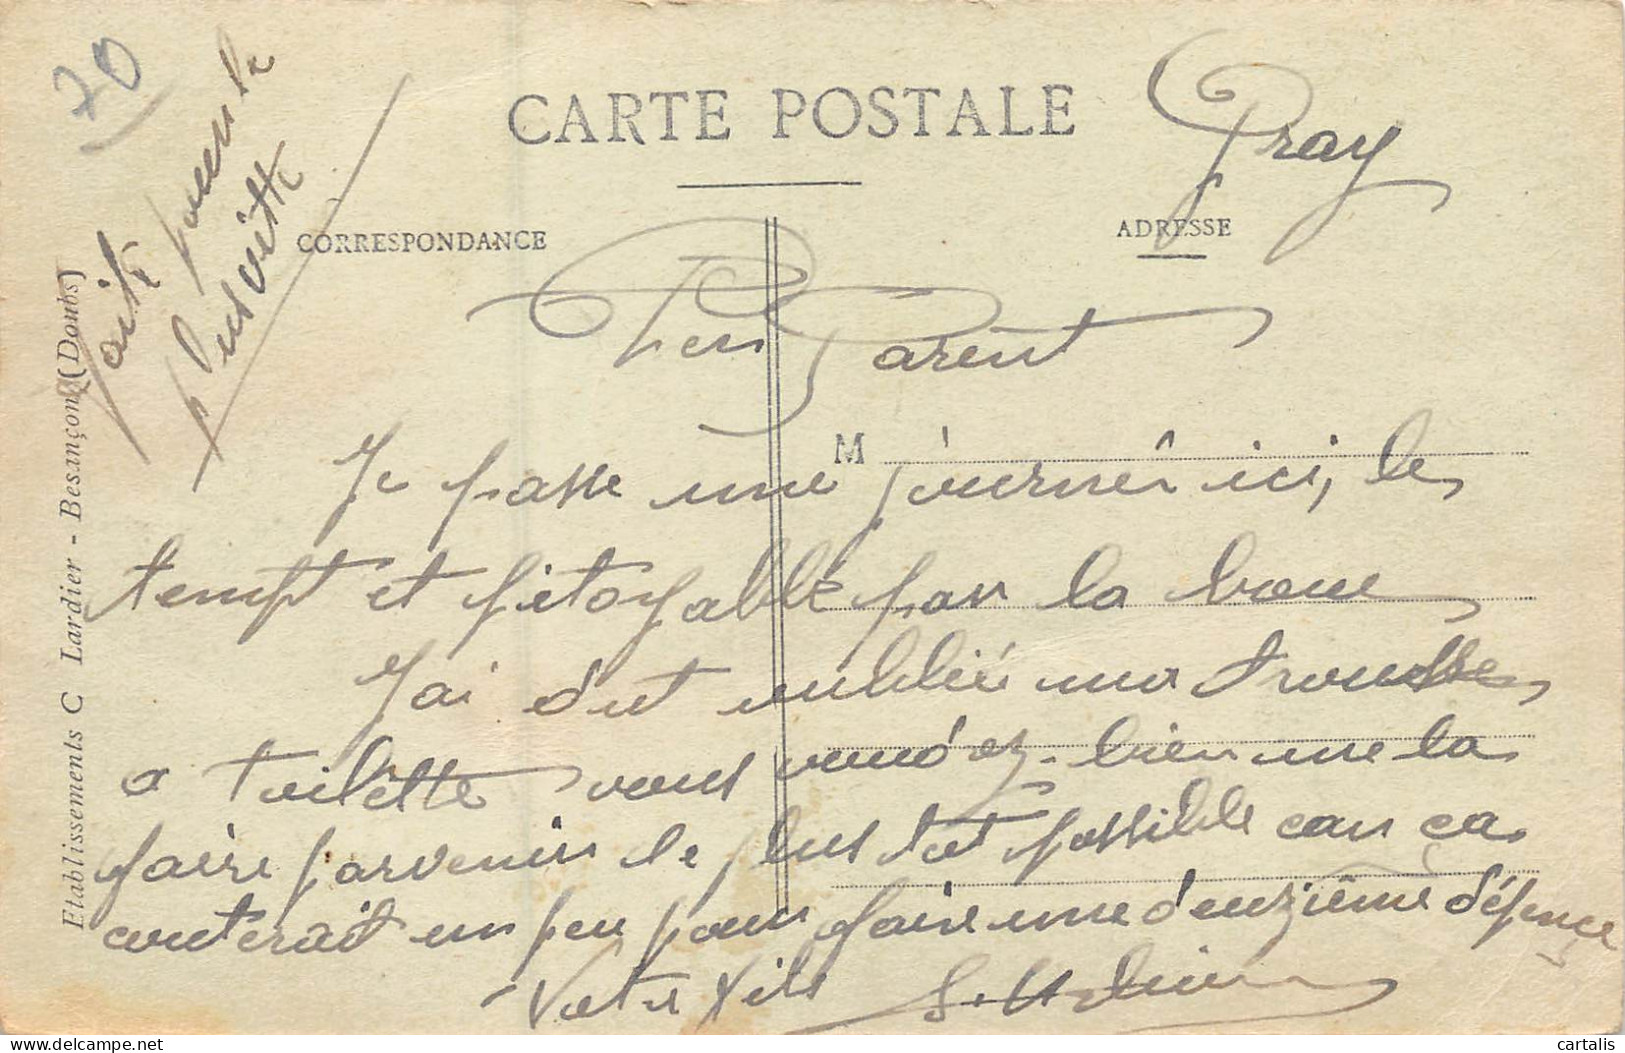 70
faite pour la
plus vitte
CARTE POSTALE
Gray
CORRESPONDANCE
ADRESSE
Cher Parent
M
Je passe une journêe ici, le
tempt et pitoyablle par la boue
J'ai dut oublié ma trousse
a toilette vous voudrez bien me la
faire parvenir le plus tot possible car ça
couterait un peu pour faire une deuzième dépence
Votre fils
Etablissements C Lardier - Besançon (Doubs)
cartalis
delcampe.net